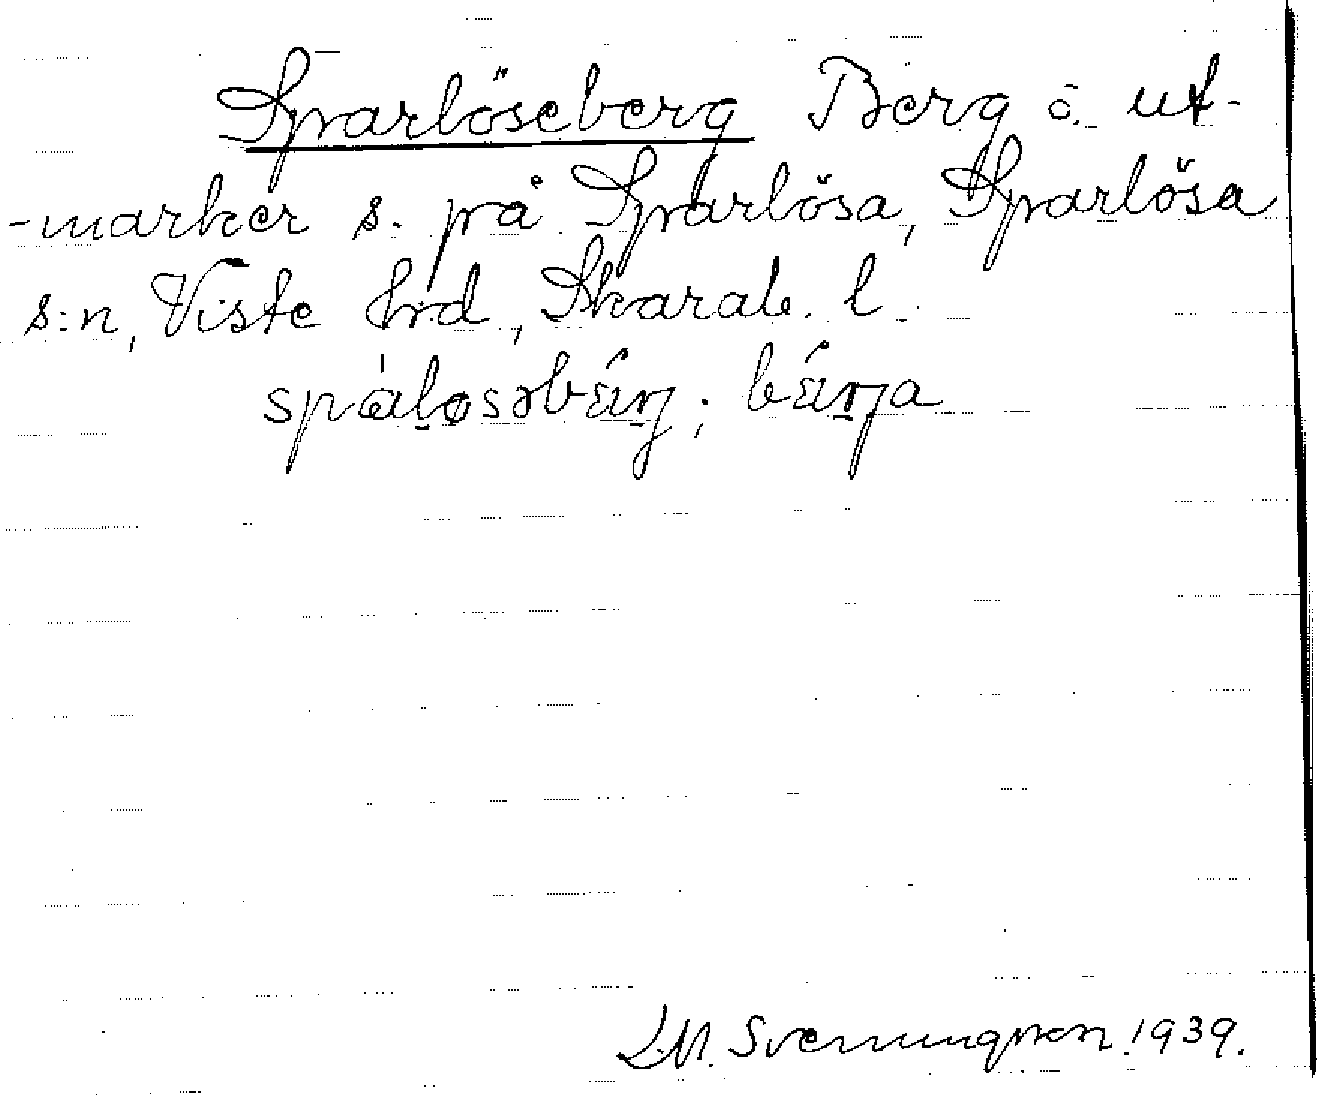 Sparlöseberg Berg o. ut-
-marker s. på Sparlösa, Sparlösa
s:n, Viste hrd, Skarab. l.
L.M. Svenungsson. 1939.